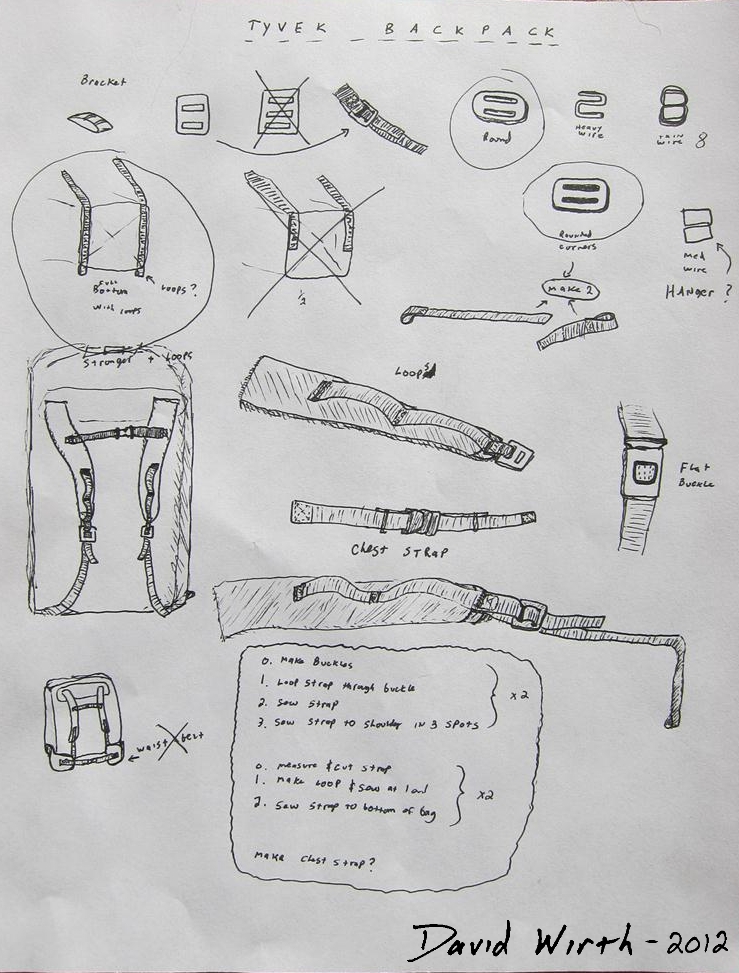 TYVEK BACKPACK
Bracket
Round
HEAVY
WIRE
THIN
WIRE 8
Rounted
corners
make 2
Med
wire
HANGER ?
Full
Bottom
with loops
Loops ?
1/2
Stronger + Loops
Loops
Flat
Buckle
Chest STRAP
waist belt
0. Make Buckles
1. Loop strap through buckle
2. Sew strap
3. Sew strap to shoulder in 3 spots
x2
0. measure & cut strap
1. make loop & sew at 1 end
2. Sew strap to bottom of bag
x2
make chest strap?
David Wirth - 2012